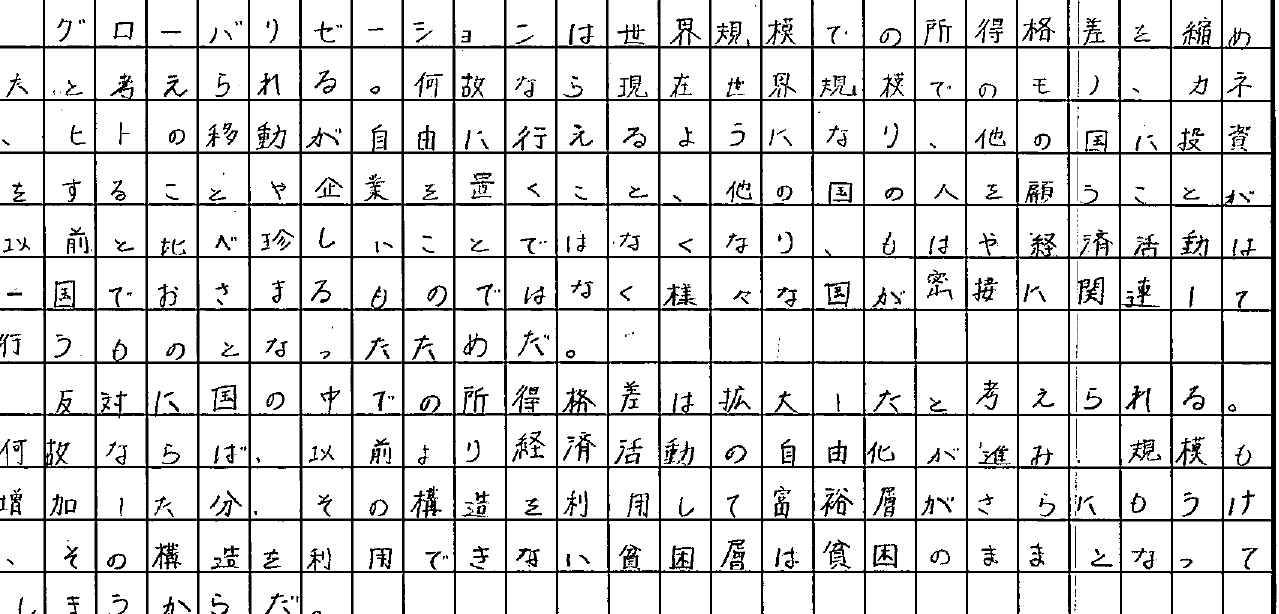 グローバリゼーションは世界規模での所得格差を縮め
たと考えられる。何故なら現在世界規模でのモノ、カネ
、ヒトの移動が自由に行えるようになり、他の国に投資
をすることや企業を置くこと、他の国の人を顧うことが
以前と比べ珍しいことではなくなり、もはや経済活動は
一国でおさまるものではなく様々な国が密接に関連して
行うものとなったためだ。
反対に国の中での所得格差は拡大したと考えられる。
何故ならば、以前より経済活動の自由化が進み、規模も
増加した分、その構造を利用して富裕層がさらにもうけ
、その構造を利用できない貧困層は貧困のままとなって
しまうからだ。